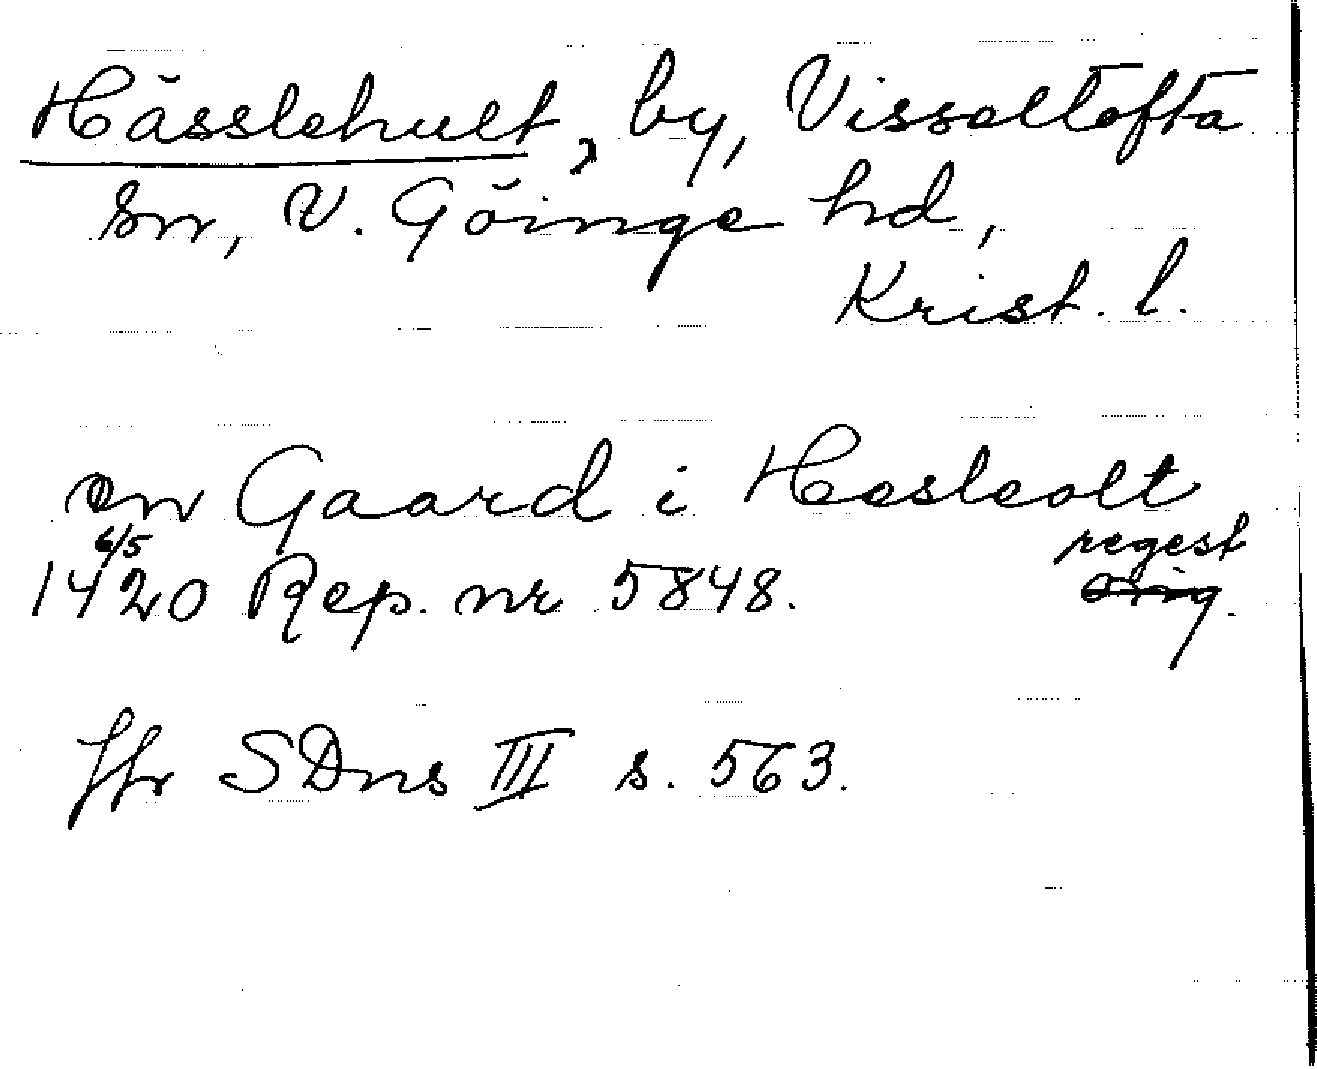 Hässlehult, by, Visseltofta
sn, V. Göinge hd,
Krist. l.
en Gaard i Hesleolt
6/5 regest
1420 Rep. nr 5848. orig.
Jfr SDns III s. 563.